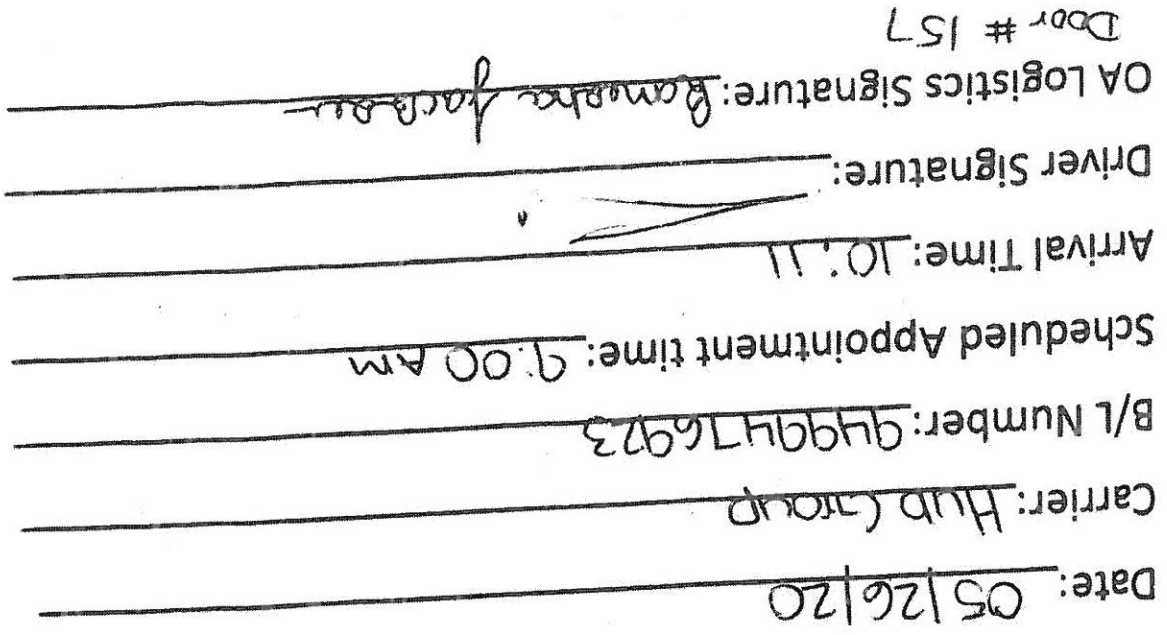 Date: 05/26/20
Carrier: Hub Group
B/L Number: 9499476923
Scheduled Appointment time: 9:00 AM
Arrival Time: 10:11
Driver Signature:
OA Logistics Signature: Jackson
Door # 157